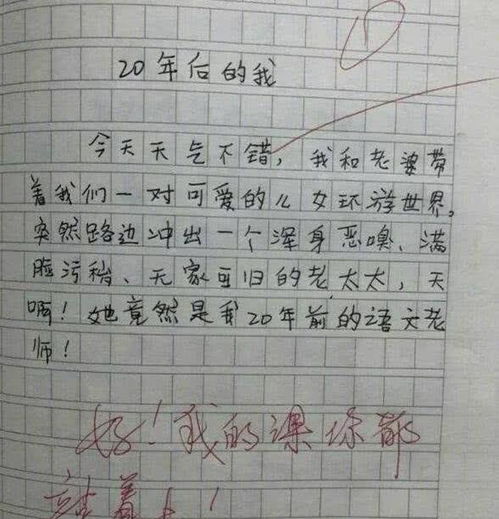 20年后的我
今天天气不错,我和老婆带
着我们一对可爱的儿女环游世界。
突然路边冲出一个浑身恶嗅、满
脸污秽、无家可归的老太太,天
啊!她竟然是我20年前的语文老
师!
好!我的课你都
站着上!